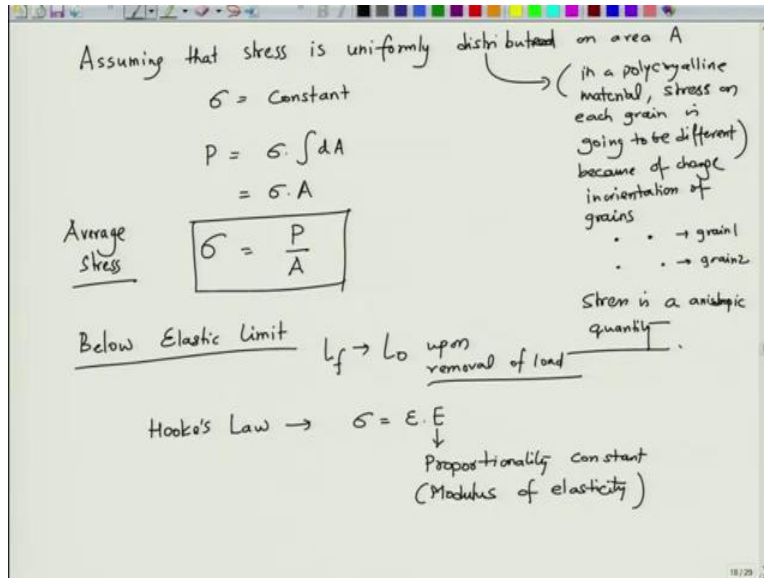 Assuming that stress is uniformly distributed on area A
σ = Constant
P = σ. ∫dA
= σ. A
Average
Stress
σ = P/A
(in a polycryalline
material, stress on
each grain is
going to be different)
because of change
in orientation of
grains
. . → grain1
. . → grain2
Stress is a anisotropic
quantity
Below Elastic Limit L_f → L_0 upon
removal of load
Hooke's Law → σ = ε. E
↓
Proportionality constant
(Modulus of elasticity)
18/29